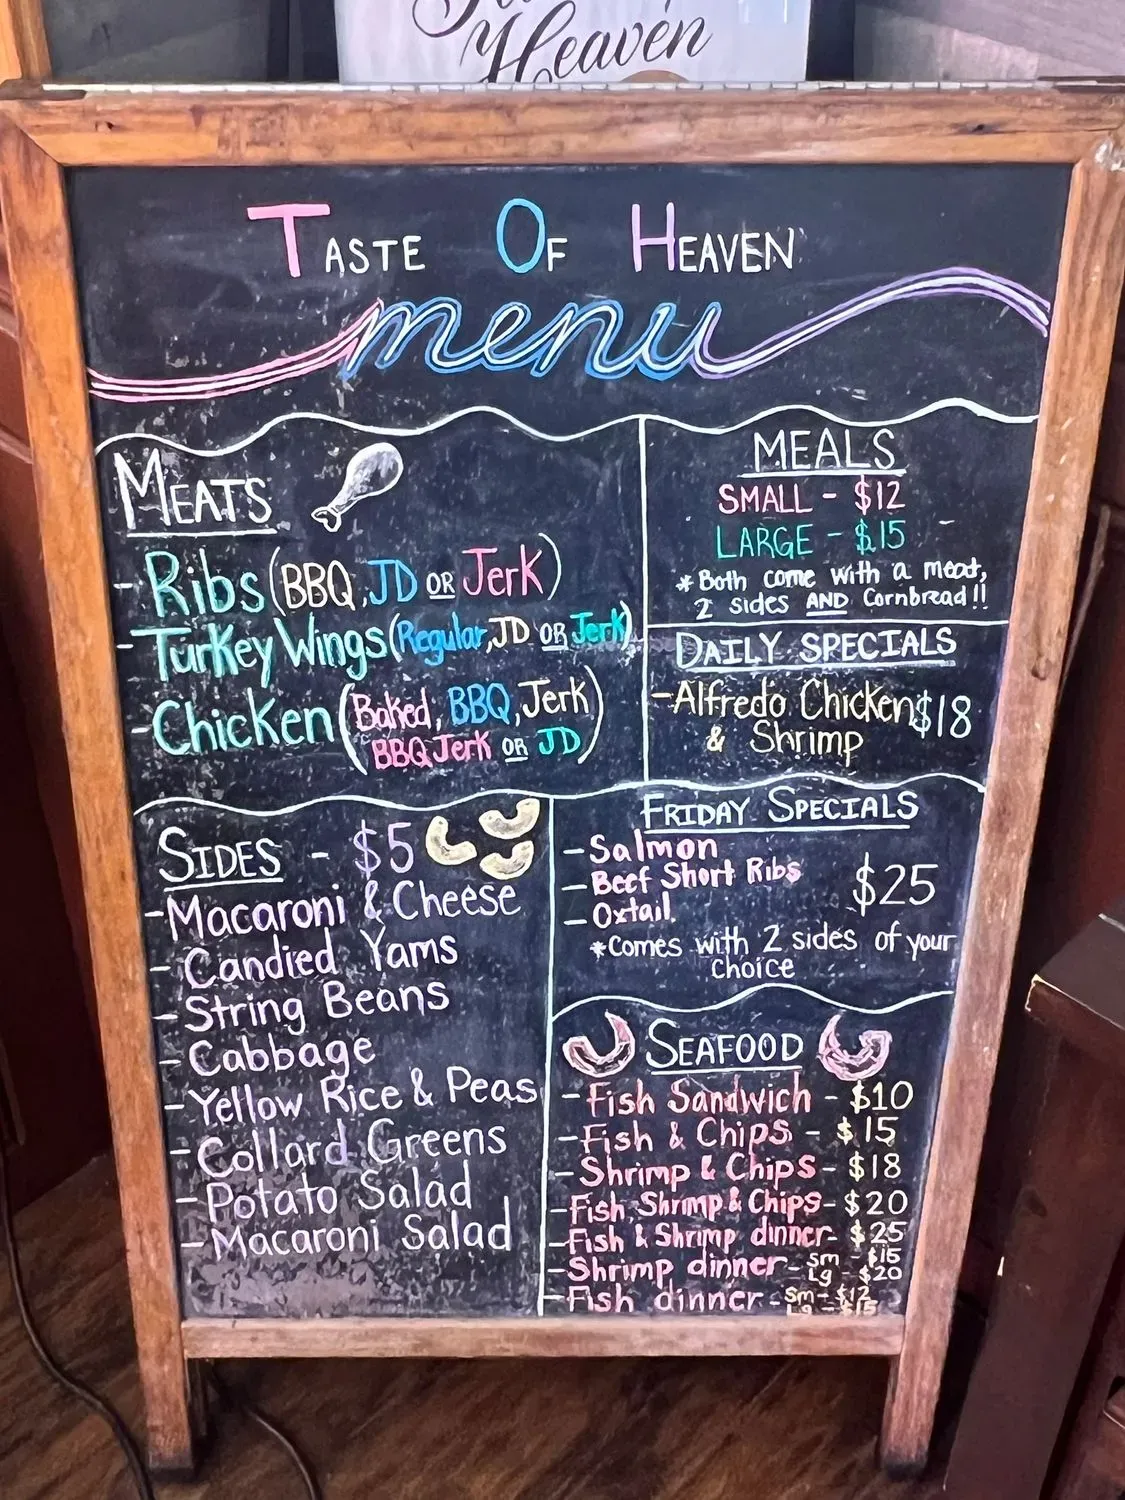 Heaven
TASTE OF HEAVEN
menu
MEATS
- Ribs (BBQ, JD OR Jerk)
- Turkey Wings (Regular, JD OR Jerk)
- Chicken (Baked, BBQ, Jerk
BBQ Jerk OR JD)
MEALS
SMALL - $12
LARGE - $15
*Both come with a meat,
2 sides AND Cornbread!!
DAILY SPECIALS
- Alfredo Chicken $18
& Shrimp
SIDES - $5
- Macaroni & Cheese
- Candied Yams
- String Beans
- Cabbage
- Yellow Rice & Peas
- Collard Greens
- Potato Salad
- Macaroni Salad
FRIDAY SPECIALS
- Salmon
- Beef Short Ribs $25
- Oxtail
*Comes with 2 sides of your
choice
SEAFOOD
- Fish Sandwich - $10
- Fish & Chips - $15
- Shrimp & Chips - $18
- Fish Shrimp & Chips - $20
- Fish & Shrimp dinner - $25
- Shrimp dinner - Sm - $15
Lg - $20
- Fish dinner - Sm - $12
Lg - $15